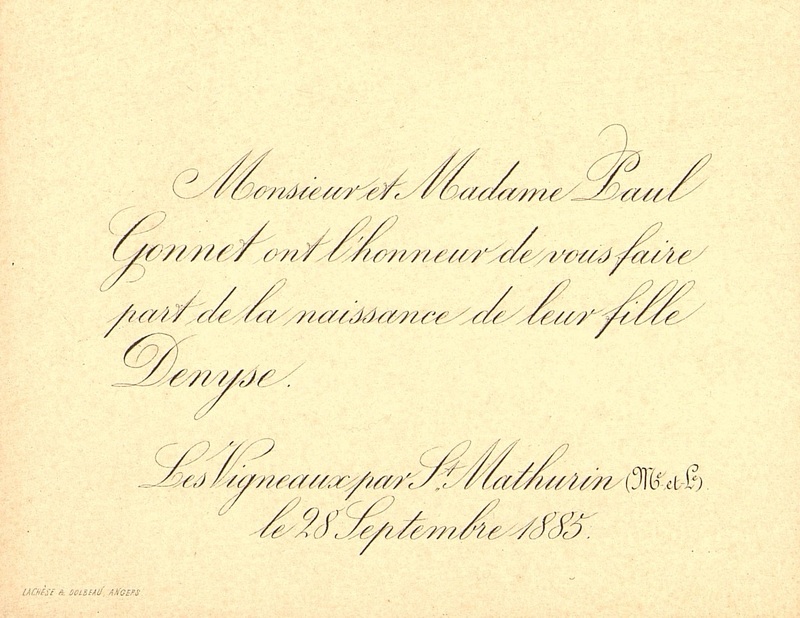 Monsieur et Madame Paul
Gonnet ont l'honneur de vous faire
part de la naissance de leur fille
Denyse.
Les Vigneaux par St. Mathurin (Me. et Le.)
le 28 Septembre 1885.
LACHÈSE & DOLBEAU, ANGERS